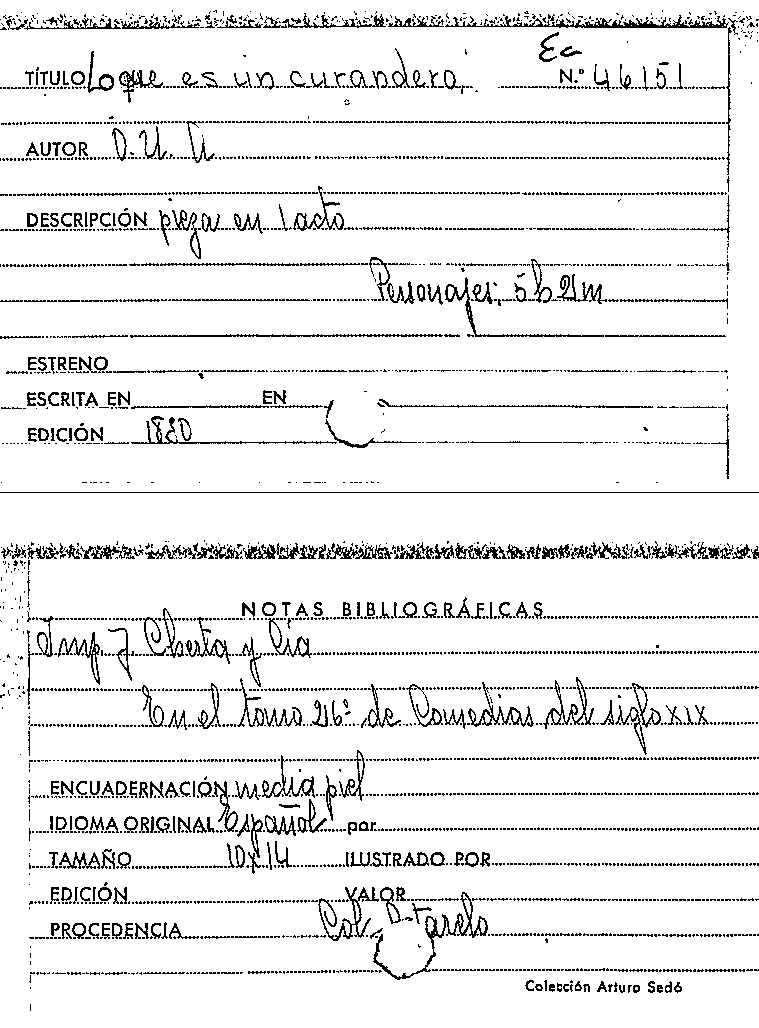 Ec
TÍTULO Lo que es un curandero,
N.º 46151
AUTOR D. U. A
DESCRIPCIÓN pieza en 1 acto
Personajes: 5h 2m
ESTRENO
ESCRITA EN EN
EDICIÓN 1820
NOTAS BIBLIOGRÁFICAS
Imp. J. Cherta y Cía
En el tomo 26º de Comedias del siglo XIX
ENCUADERNACIÓN media piel
IDIOMA ORIGINAL Español por
TAMAÑO 10x14 ILUSTRADO POR
EDICIÓN VALOR
PROCEDENCIA Col.
Colección Arturo Sedó